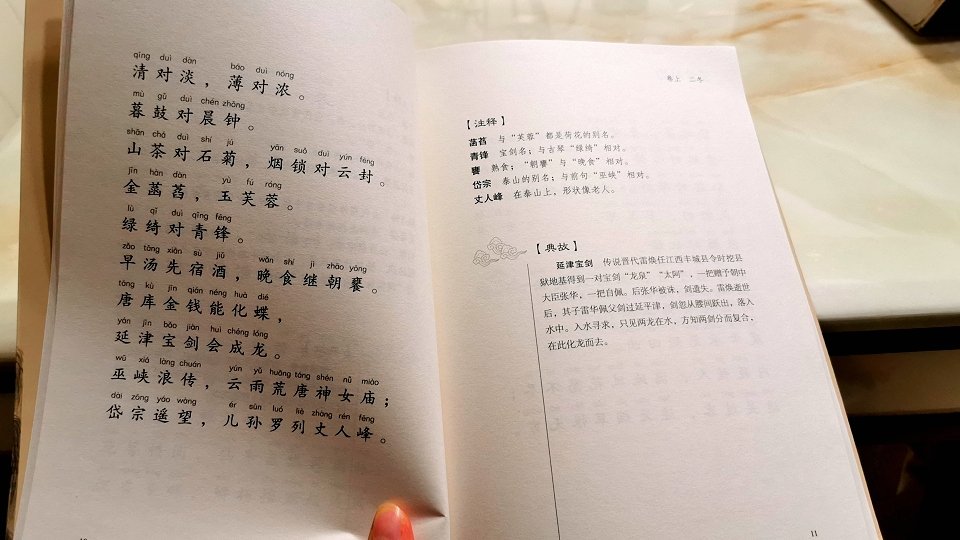 qīng duì dàn bāo duì nóng
清对淡，薄对浓。
mù gǔ duì chén zhōng
暮鼓对晨钟。
shān chá duì shí jú yān suǒ duì yún fēng
山茶对石菊，烟锁对云封。
jīn hàn dàn yù fú róng
金菡萏，玉芙蓉。
lù qǐ duì qīng fēng
绿绮对青锋。
zǎo tāng xiān sù jiǔ wǎn shí jì zhāo yōng
早汤先宿酒，晚食继朝饔。
táng kù jīn qián néng huà dié
唐库金钱能化蝶，
yán jīn bǎo jiàn huì chéng lóng
延津宝剑会成龙。
wū xiá làng chuán yún yǔ huāng táng shén nǚ miào
巫峡浪传，云雨荒唐神女庙；
dài zōng yáo wàng ér sūn luó liè zhàng rén fēng
岱宗遥望，儿孙罗列丈人峰。
卷上 二冬
【注释】
菡萏 与“芙蓉”都是荷花的别名。
青锋 宝剑名；与古琴“绿绮”相对。
饔 熟食；“朝饔”与“晚食”相对。
岱宗 泰山的别名；与前句“巫峡”相对。
丈人峰 在泰山上，形状像老人。
【典故】
延津宝剑 传说晋代雷焕任江西丰城县令时挖县
狱地基得到一对宝剑“龙泉”“太阿”，一把赠予朝中
大臣张华，一把自佩。后张华被诛，剑遗失。雷焕逝世
后，其子雷华佩父剑过延平津，剑忽从腰间跃出，落入
水中。入水寻求，只见两龙在水，方知两剑分而复合，
在此化龙而去。
11